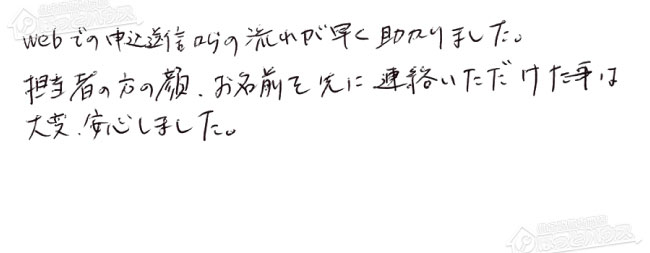 webでの申込送信からの流れが早く助かりました。
担当者の方の顔、お名前を先に連絡いただけた事は
大変、安心しました。